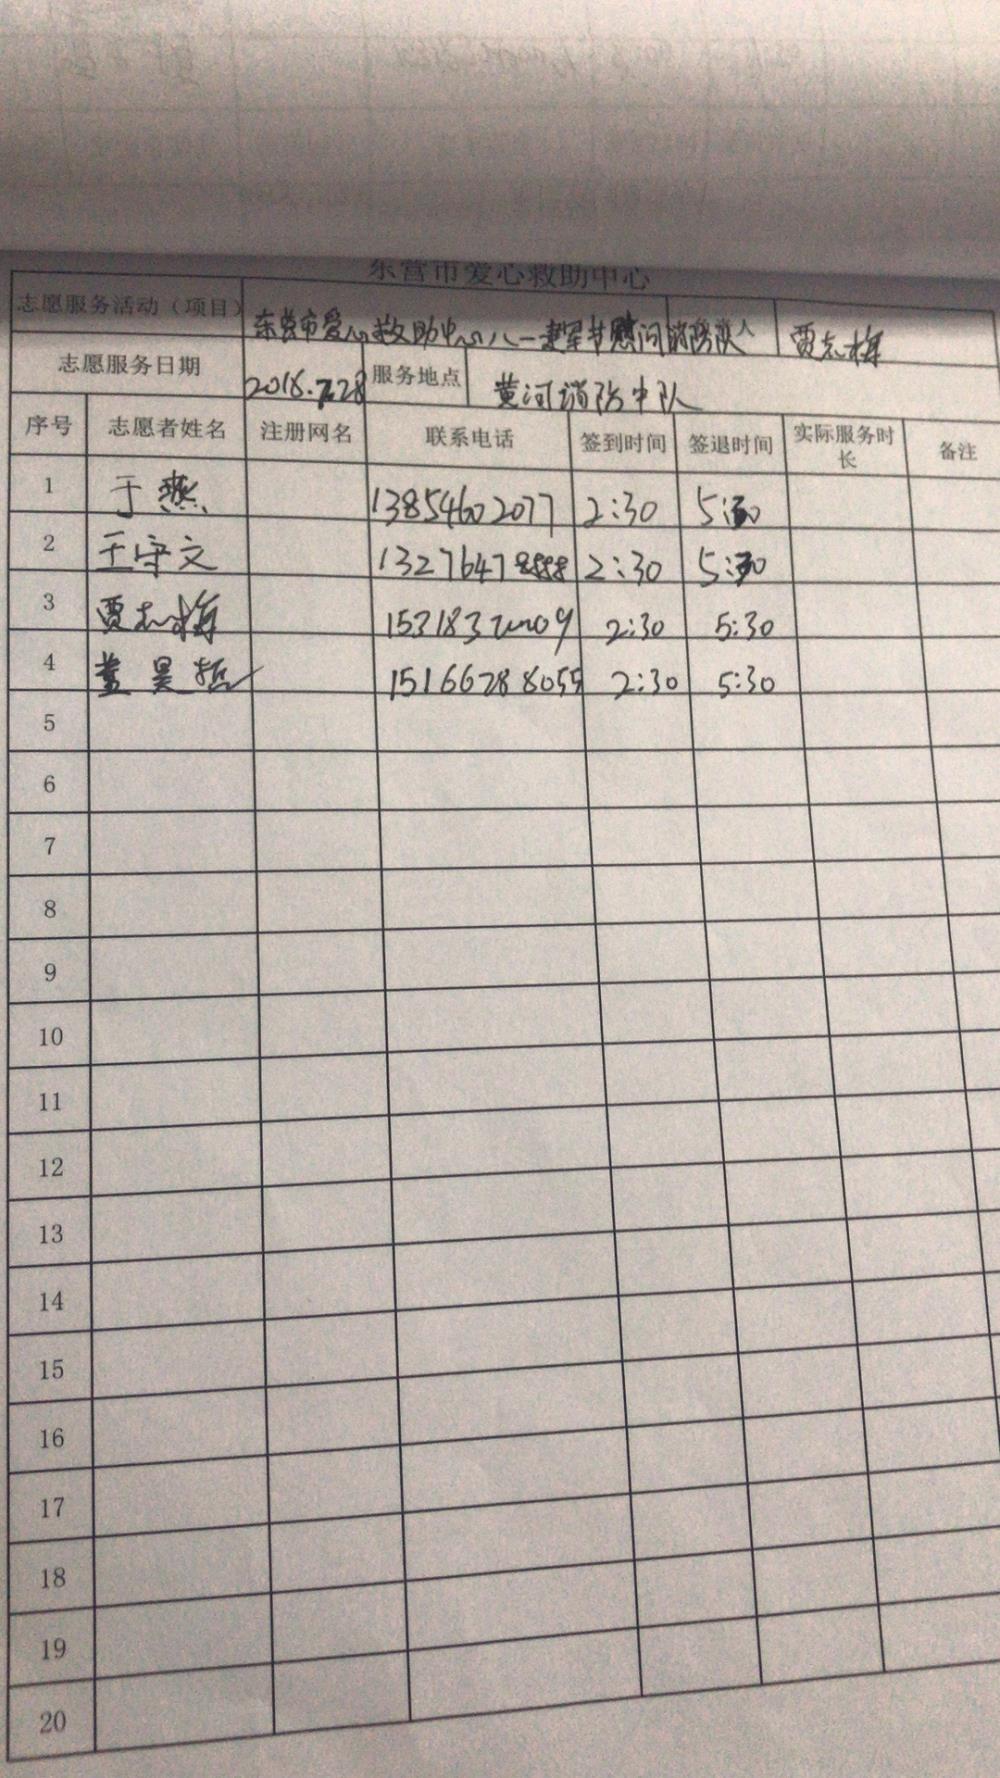 东营市爱心救助中心
志愿服务活动（项目） 东营市爱心救助中心八一建军节慰问消防队 人 贾志梅
志愿服务日期 2018.7.28 服务地点 黄河消防中队
序号 志愿者姓名 注册网名 联系电话 签到时间 签退时间 实际服务时长 备注
1 于燕 13854602077 2:30 5:30
2 王守文 13276478888 2:30 5:30
3 贾志梅 2:30 5:30
4 盖昊哲 15166288055 2:30 5:30
5
6
7
8
9
10
11
12
13
14
15
16
17
18
19
20